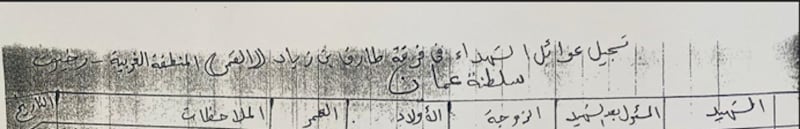 تسجيل عوائل الشهداء في فرقة طارق بن زياد (القمر) المنطقة الغربية - رخيوت
سلطنة عمان
الشهيد المسئول بعد الشهيد الزوجة الأولاد العمر الملاحظات التاريخ